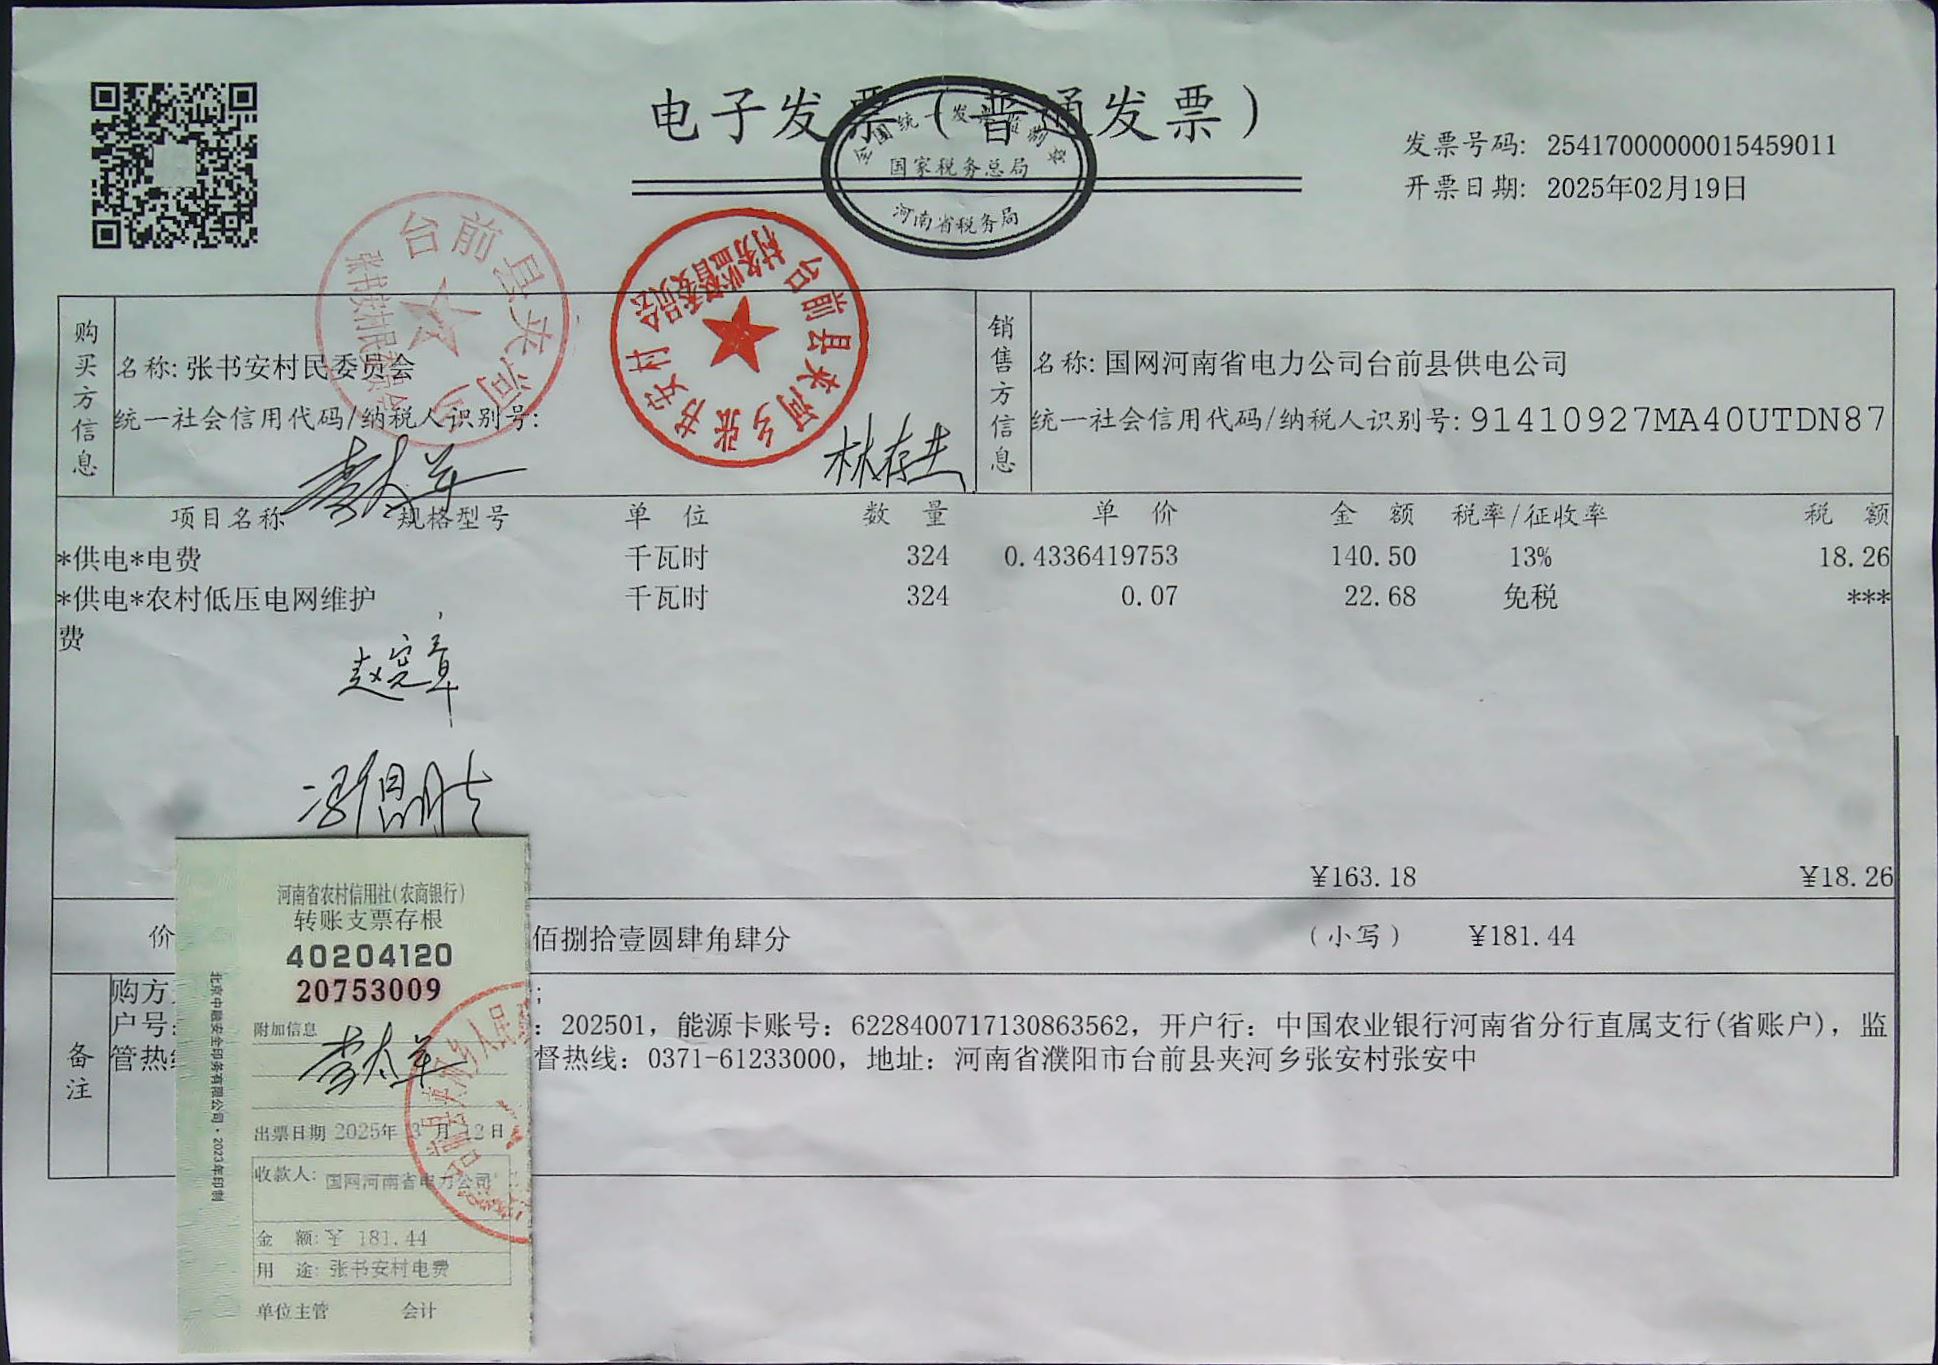 电子发票（普通发票）
全国统一发票监制章
国家税务总局
河南省税务局
发票号码: 25417000000015459011
开票日期: 2025年02月19日
台前县夹河乡
张书安村民委员会
台前县夹河乡张书安村
村务监督委员会
购买方信息
名称: 张书安村民委员会
统一社会信用代码/纳税人识别号:
销售方信息
名称: 国网河南省电力公司台前县供电公司
统一社会信用代码/纳税人识别号: 91410927MA40UTDN87
林存杰
项目名称 规格型号 单 位 数 量 单 价 金 额 税率/征收率 税 额
*供电*电费 千瓦时 324 0.4336419753 140.50 13% 18.26
*供电*农村低压电网维护 千瓦时 324 0.07 22.68 免税 ***
费
赵宪章
¥163.18 ¥18.26
价 佰捌拾壹圆肆角肆分 （小写） ¥181.44
备注
购方 ;
户号: : 202501, 能源卡账号: 6228400717130863562, 开户行: 中国农业银行河南省分行直属支行(省账户), 监
管热 督热线: 0371-61233000, 地址: 河南省濮阳市台前县夹河乡张安村张安中
河南省农村信用社(农商银行)
转账支票存根
40204120
20753009
附加信息
出票日期 2025年 3 月 12 日
收款人: 国网河南省电力公司
金 额: ¥ 181.44
用 途: 张书安村电费
单位主管 会计
北京中融安全印务有限公司·2023年印制